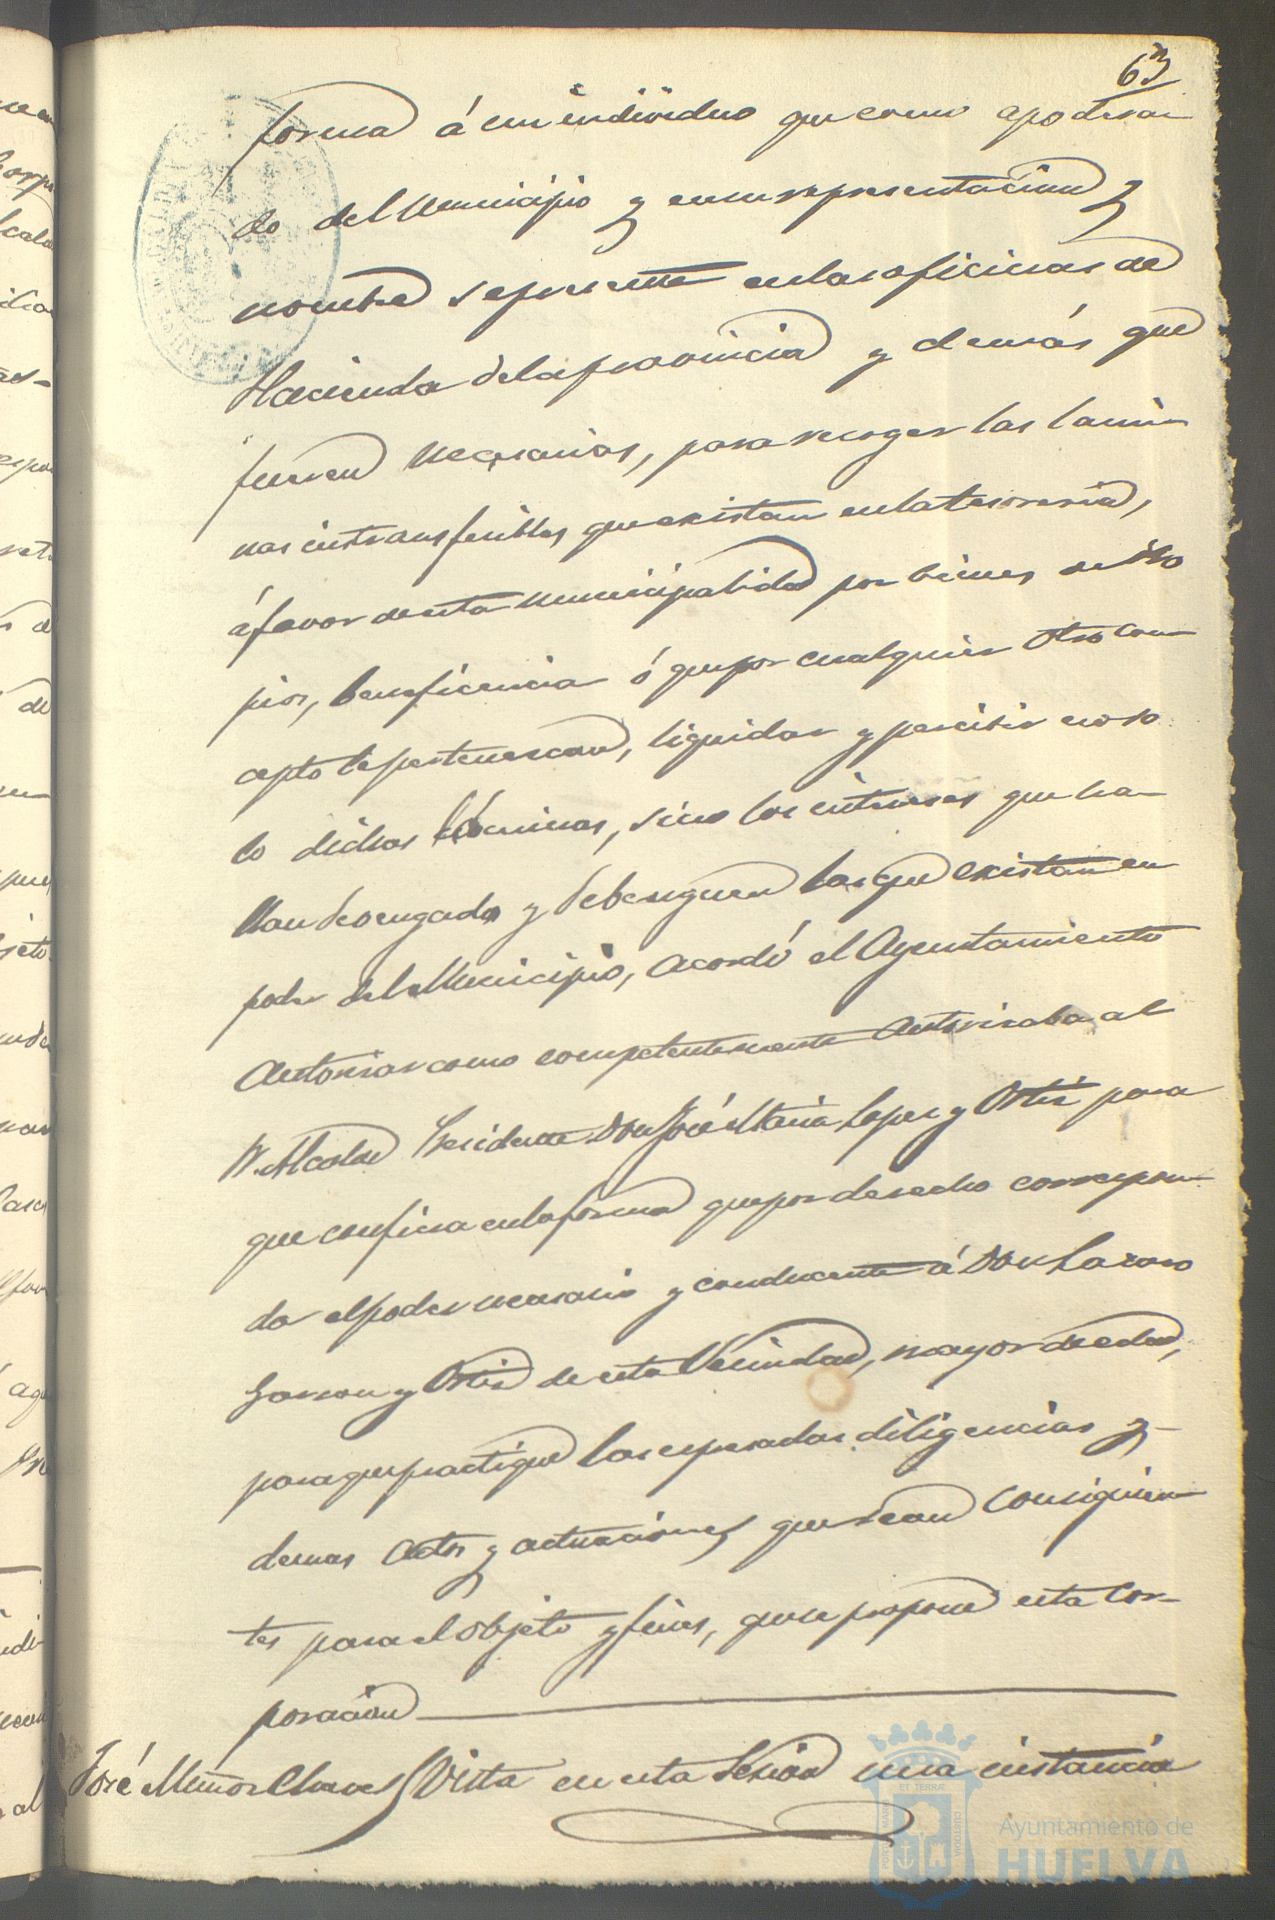 63
forma á un individuo que como apodera-
do del Municipio y en su representacion y
nombre se presente en las oficinas de
Hacienda de la provincia y demás que
fueren necesarias, para recoger las lami-
nas intransferibles que existan en la tesoreria,
á favor de esta municipalidad por bienes de Pro
pios, beneficencia ó que por cualquier otro con-
cepto le pertenescan, liquidar y percibir no so
lo dichas láminas, sino los intereses que ha-
llan devengado y debenguen las que existan en
poder del Municipio, acordó el Ayuntamiento
Autorisar como competentemente autorisaba al
Sr. Alcalde Presidente Don José Maria Lopes y Ortiz para
que confiera en la forma que por derecho correspon-
da el poder necesario y conducente á Don Lazaro
Garzon y Ortiz de esta Vecindad, mayor de edad,
para que practique las espresadas diligencias y
demas actos y actuaciones que sean consiguien-
tes para el objeto y fines, que se propone esta Cor-
poracion
José Muñoz Chaves Vista en esta Sesion una instancia
Ayuntamiento de
HUELVA